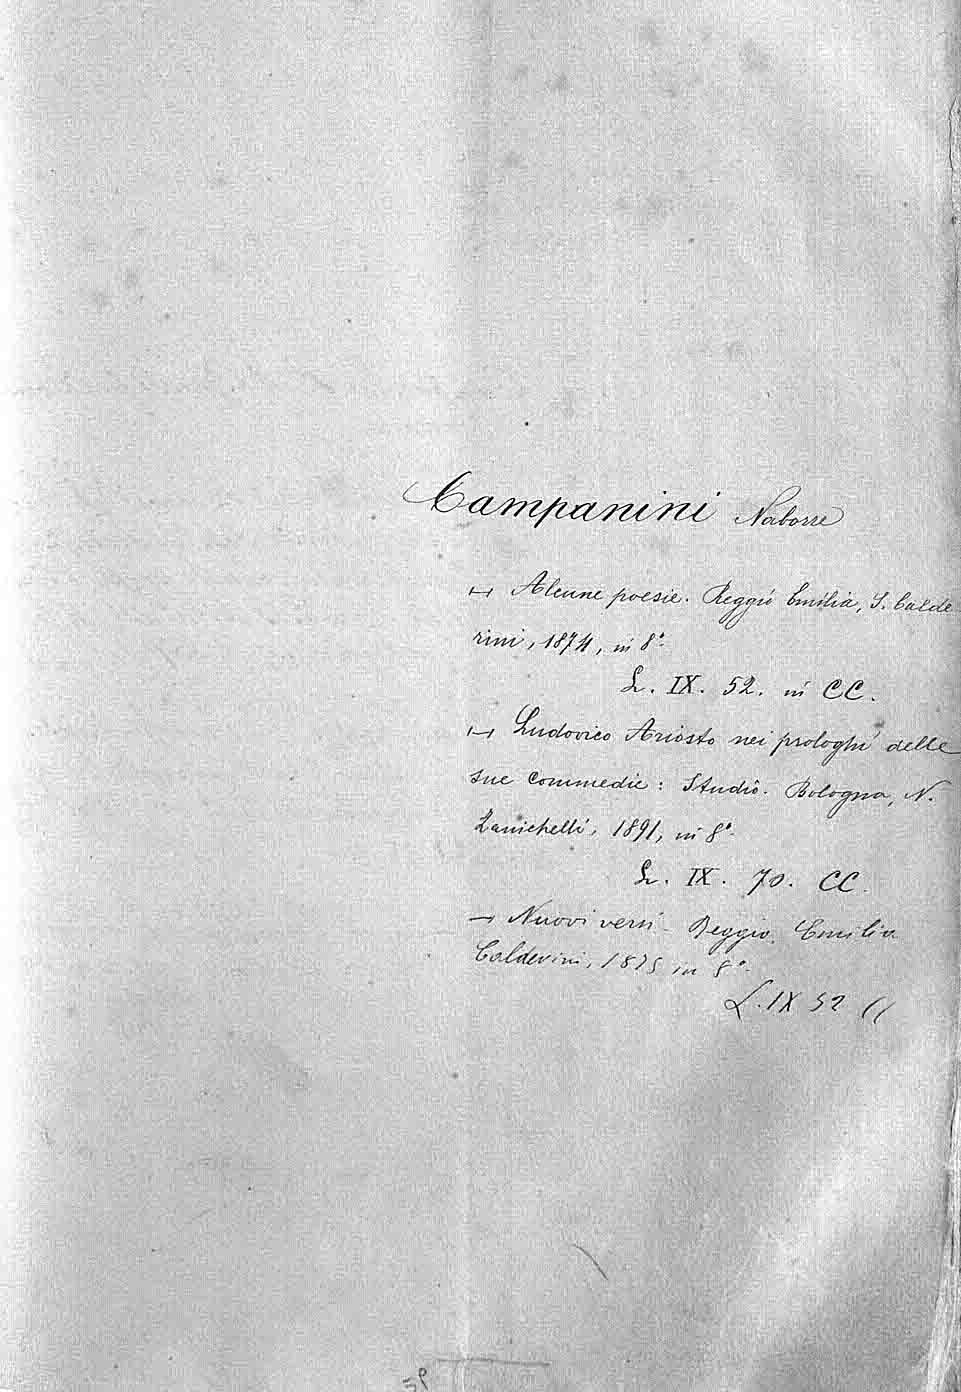 Campanini Naborre
⊢⊣ Alcune poesie. Reggio Emilia, S. Calde
rini, 1874, in 8°.
L. IX. 52. in CC.
⊢⊣ Ludovico Ariosto nei prologhi delle
sue commedie: Studio. Bologna, N.
Zanichelli, 1891, in 8°.
L. IX. 70. CC.
— Nuovi versi - Reggio Emilia
Calderini, 1875 in 8°.
L. IX 52 CC